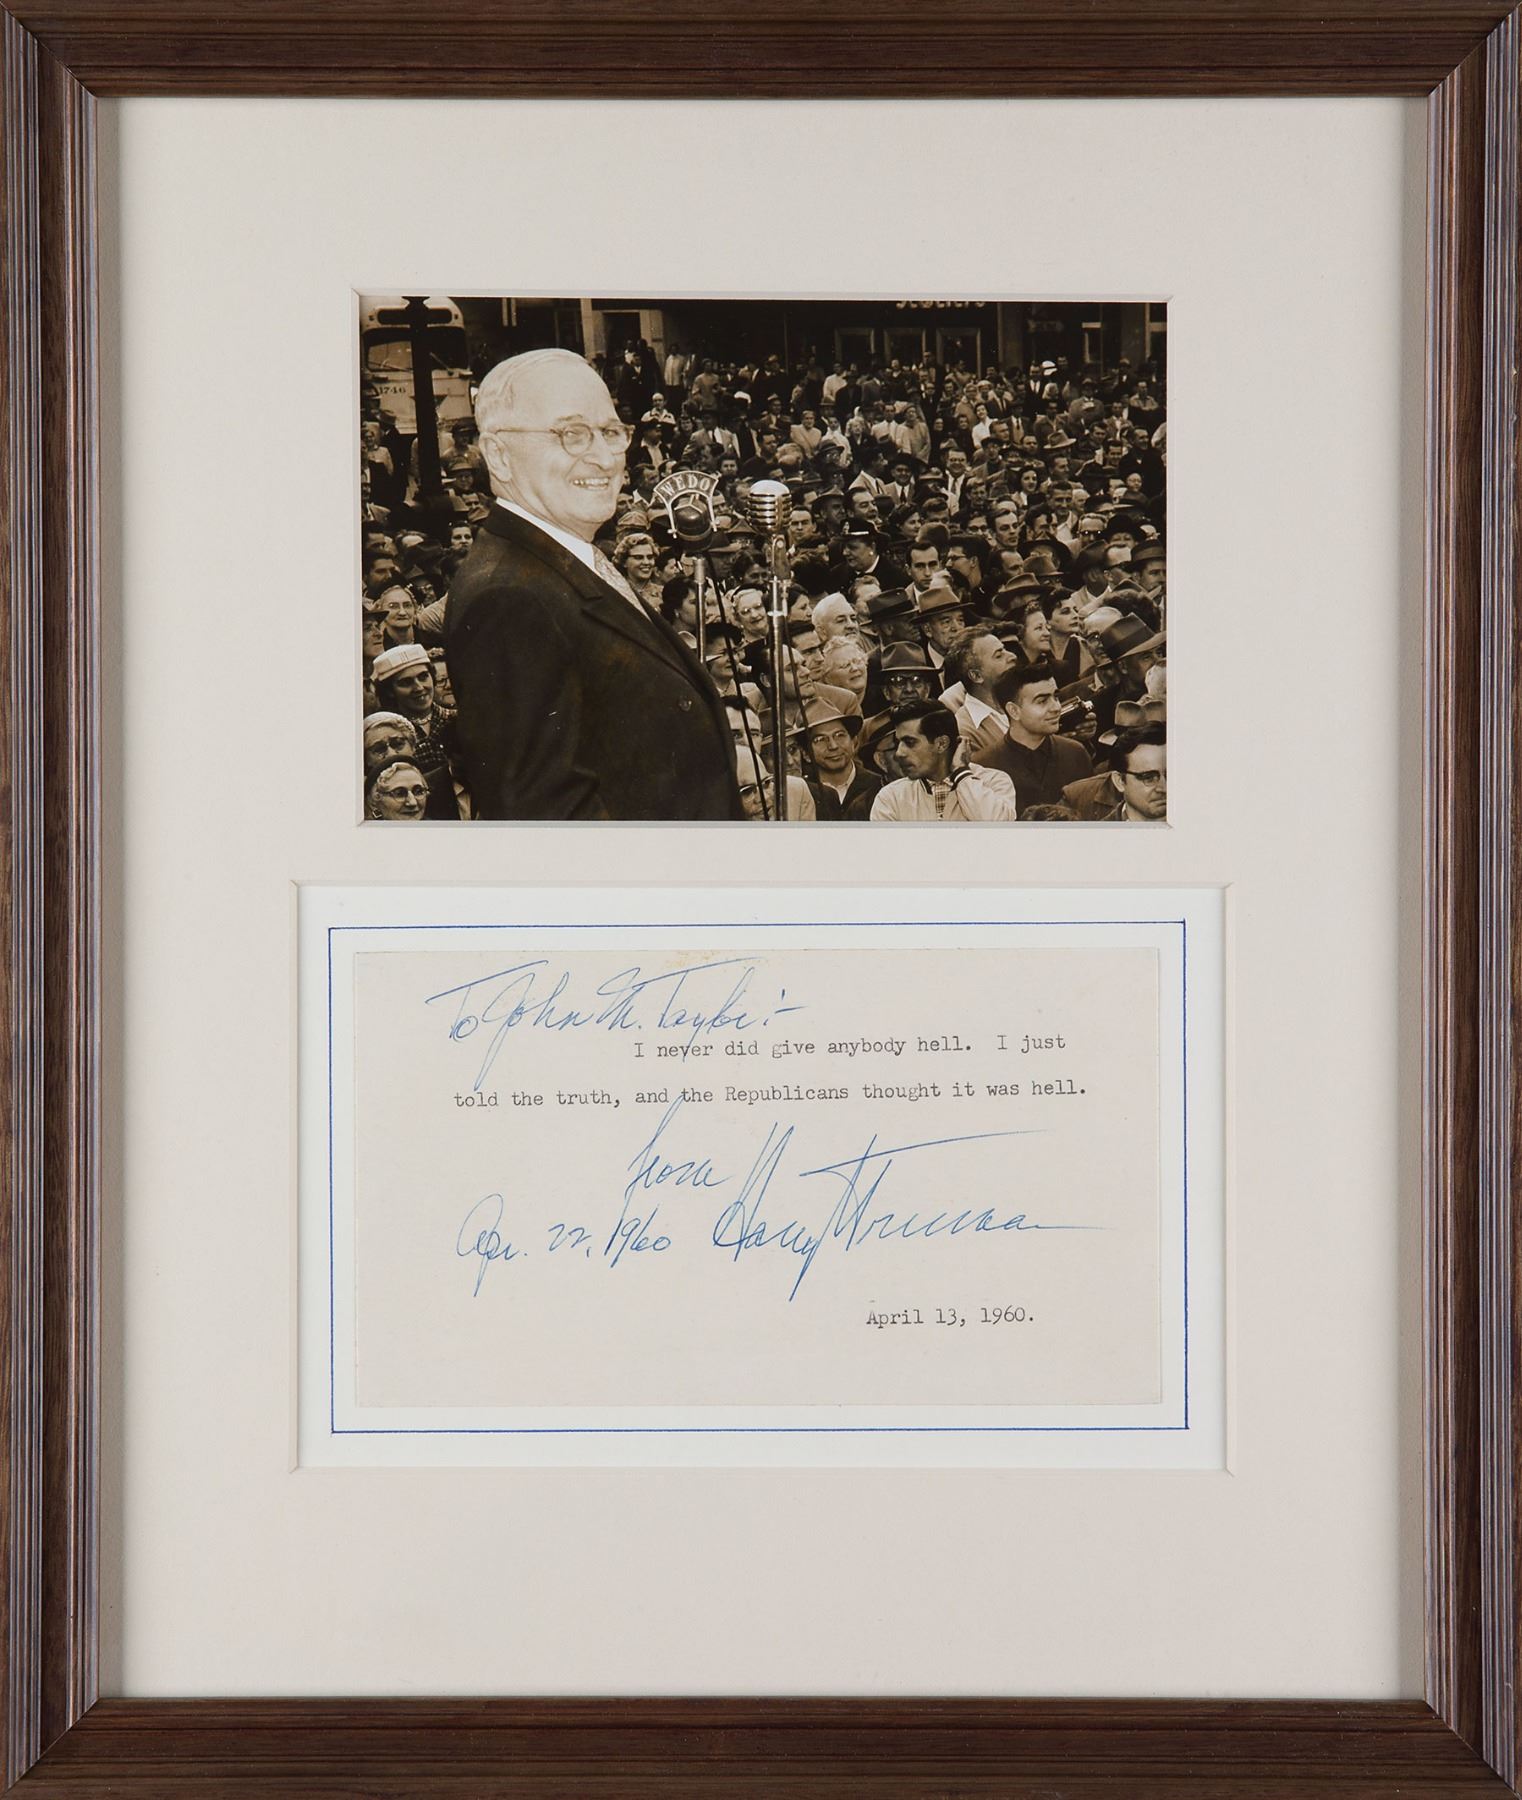 1746
WEDO
To John M. Taylor:-
I never did give anybody hell. I just
told the truth, and the Republicans thought it was hell.
from
Apr. 22, 1960 Harry Truman
April 13, 1960.